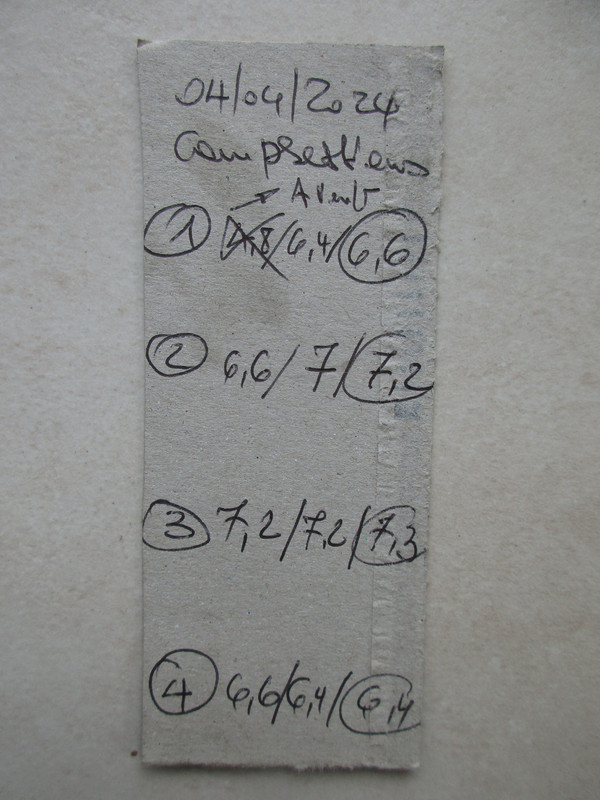 04/04/2024
① /6,4/6,6
② 6,6/7/7,2
③ 7,2/7,2/7,3
④ 6,6/6,4/6,4